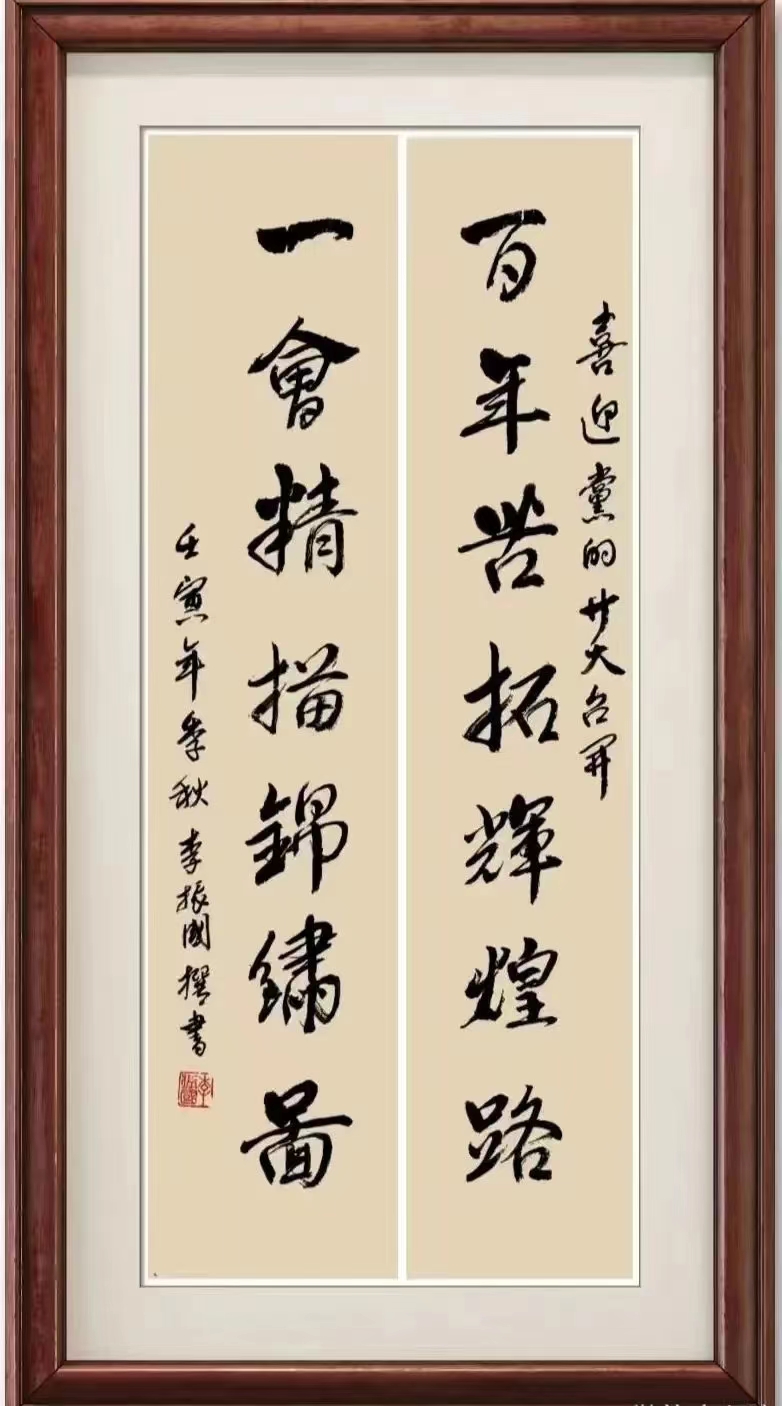 喜迎黨的廿大召開
百年苦拓輝煌路
一會精描錦繡圖
壬寅年季秋 李振國撰書